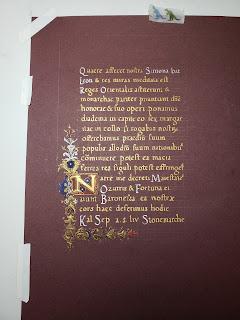 Quare afferet nostri Simona bat
Leon & res muras meditata est
Reges Orientalis astiterunt &
monarchae pariter pruntiunt
honorae & suo operi ponamus
diadema in capite eo sex margar
itae in collo si rogabis nostra
offerebamus praedio suum
populis allodio suum nationibus
commuere potest ea macia
ferrea res siguli potest
Narre me decrets Maiestatie
Ozurr & Fortuna ei
aiunt Baronessa ex nostra
cors haec deferimus hodie
Kal Sep a.s. liv Stonemarche